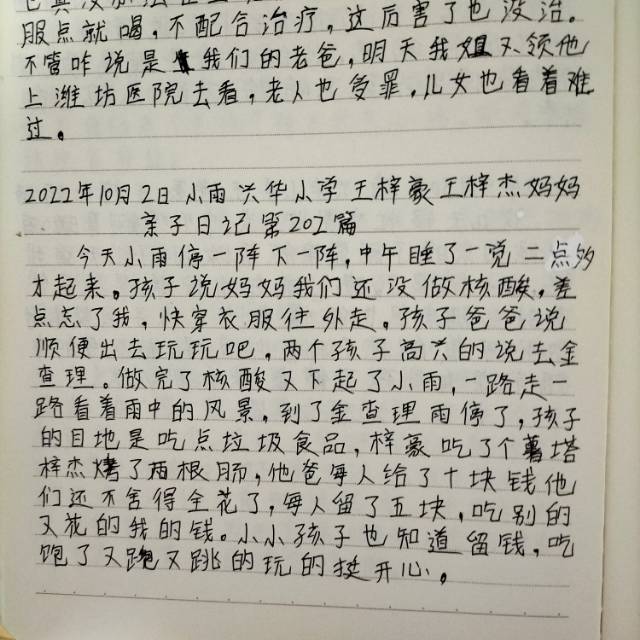 服点就喝，不配合治疗，这厉害了也没治。
不管咋说是我们的老爸，明天我姐又领他
上潍坊医院去看，老人也受罪，儿女也看着难
过。
2022年10月2日小雨兴华小学王梓豪王梓杰妈妈
亲子日记第202篇
今天小雨停一阵下一阵，中午睡了一觉二点多
才起来。孩子说妈妈我们还没做核酸，差
点忘了我，快穿衣服往外走。孩子爸爸说
顺便出去玩玩吧，两个孩子高兴的说去金
查理。做完了核酸又下起了小雨，一路走一
路看着雨中的风景，到了金查理雨停了，孩子
的目地是吃点垃圾食品，梓豪吃了个薯塔
梓杰烤了两根肠，他爸每人给了十块钱他
们还不舍得全花了，每人留了五块，吃别的
又花的我的钱。小小孩子也知道留钱，吃
饱了又跑又跳的玩的挺开心。